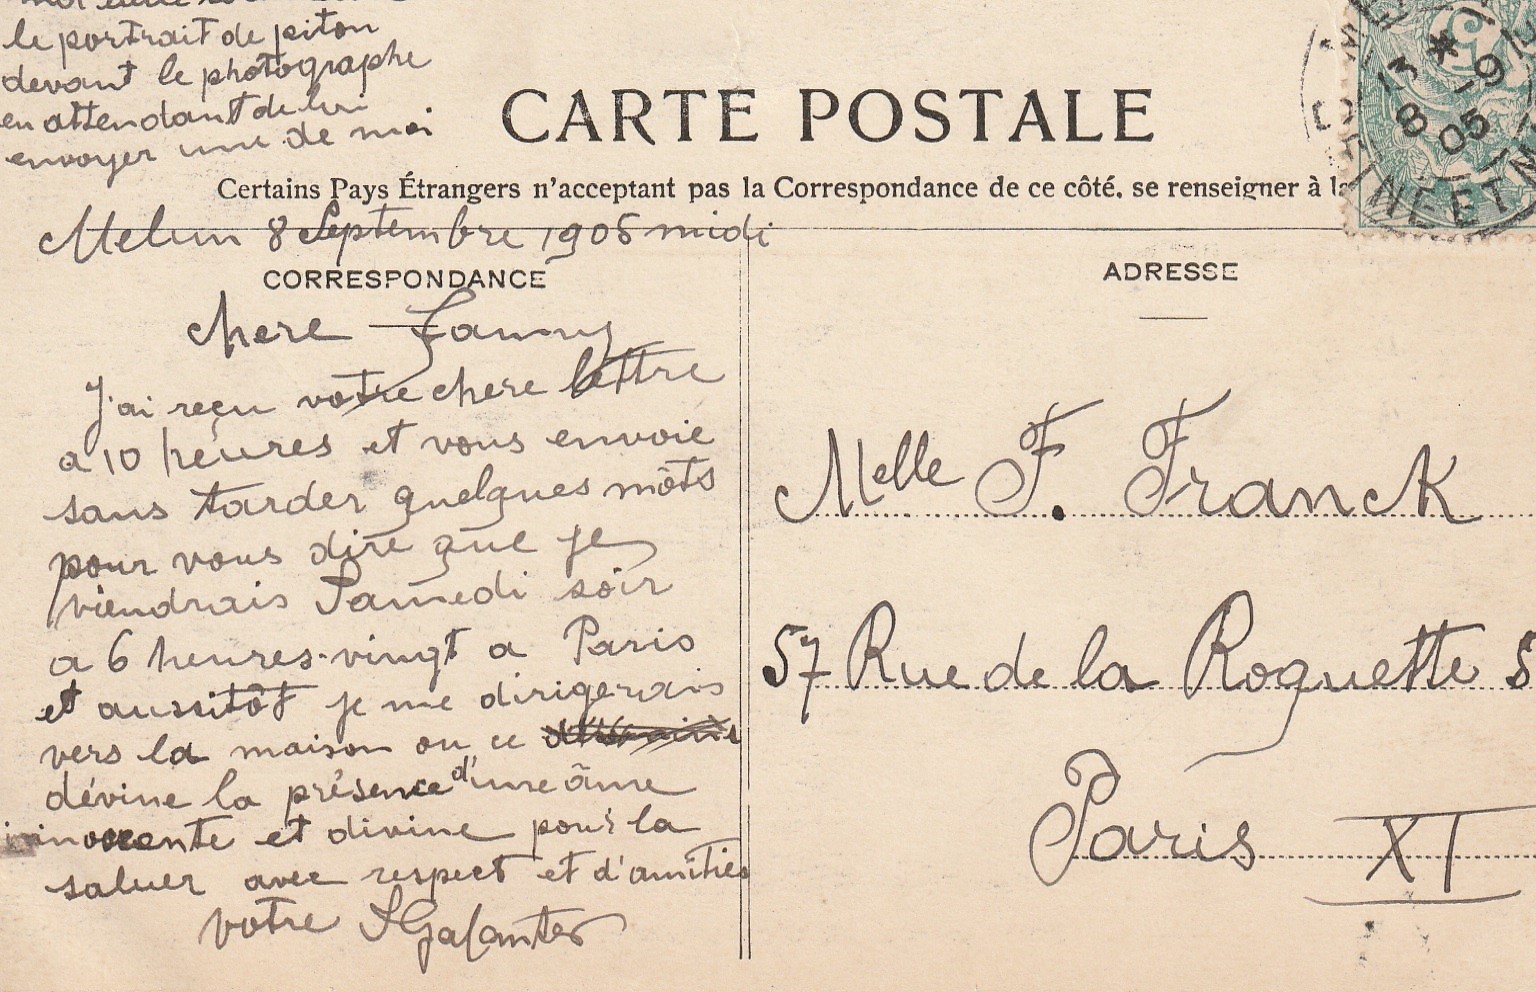 le portrait de piton
devant le photographe
en attendant de lui
envoyer une de moi
CARTE POSTALE
Certains Pays Étrangers n'acceptant pas la Correspondance de ce côté, se renseigner à la
Melun 8 Septembre 1905 midi
CORRESPONDANCE
chere Fanny
J'ai reçu votre chere lettre
a 10 heures et vous envoie
sans tarder quelques môts
pour vous dire que je
viendrais Samedi soir
a 6 heures-vingt a Paris
et aussitôt je me dirigerais
vers la maison ou ce
dévine la présence d'une âme
innocente et divine pour la
saluer avec respect et d'amitiés
votre SGalanter
ADRESSE
Melle F. Franck
57 Rue de la Roquette
Paris XI
13 * 9
8 05
SEINE ET M